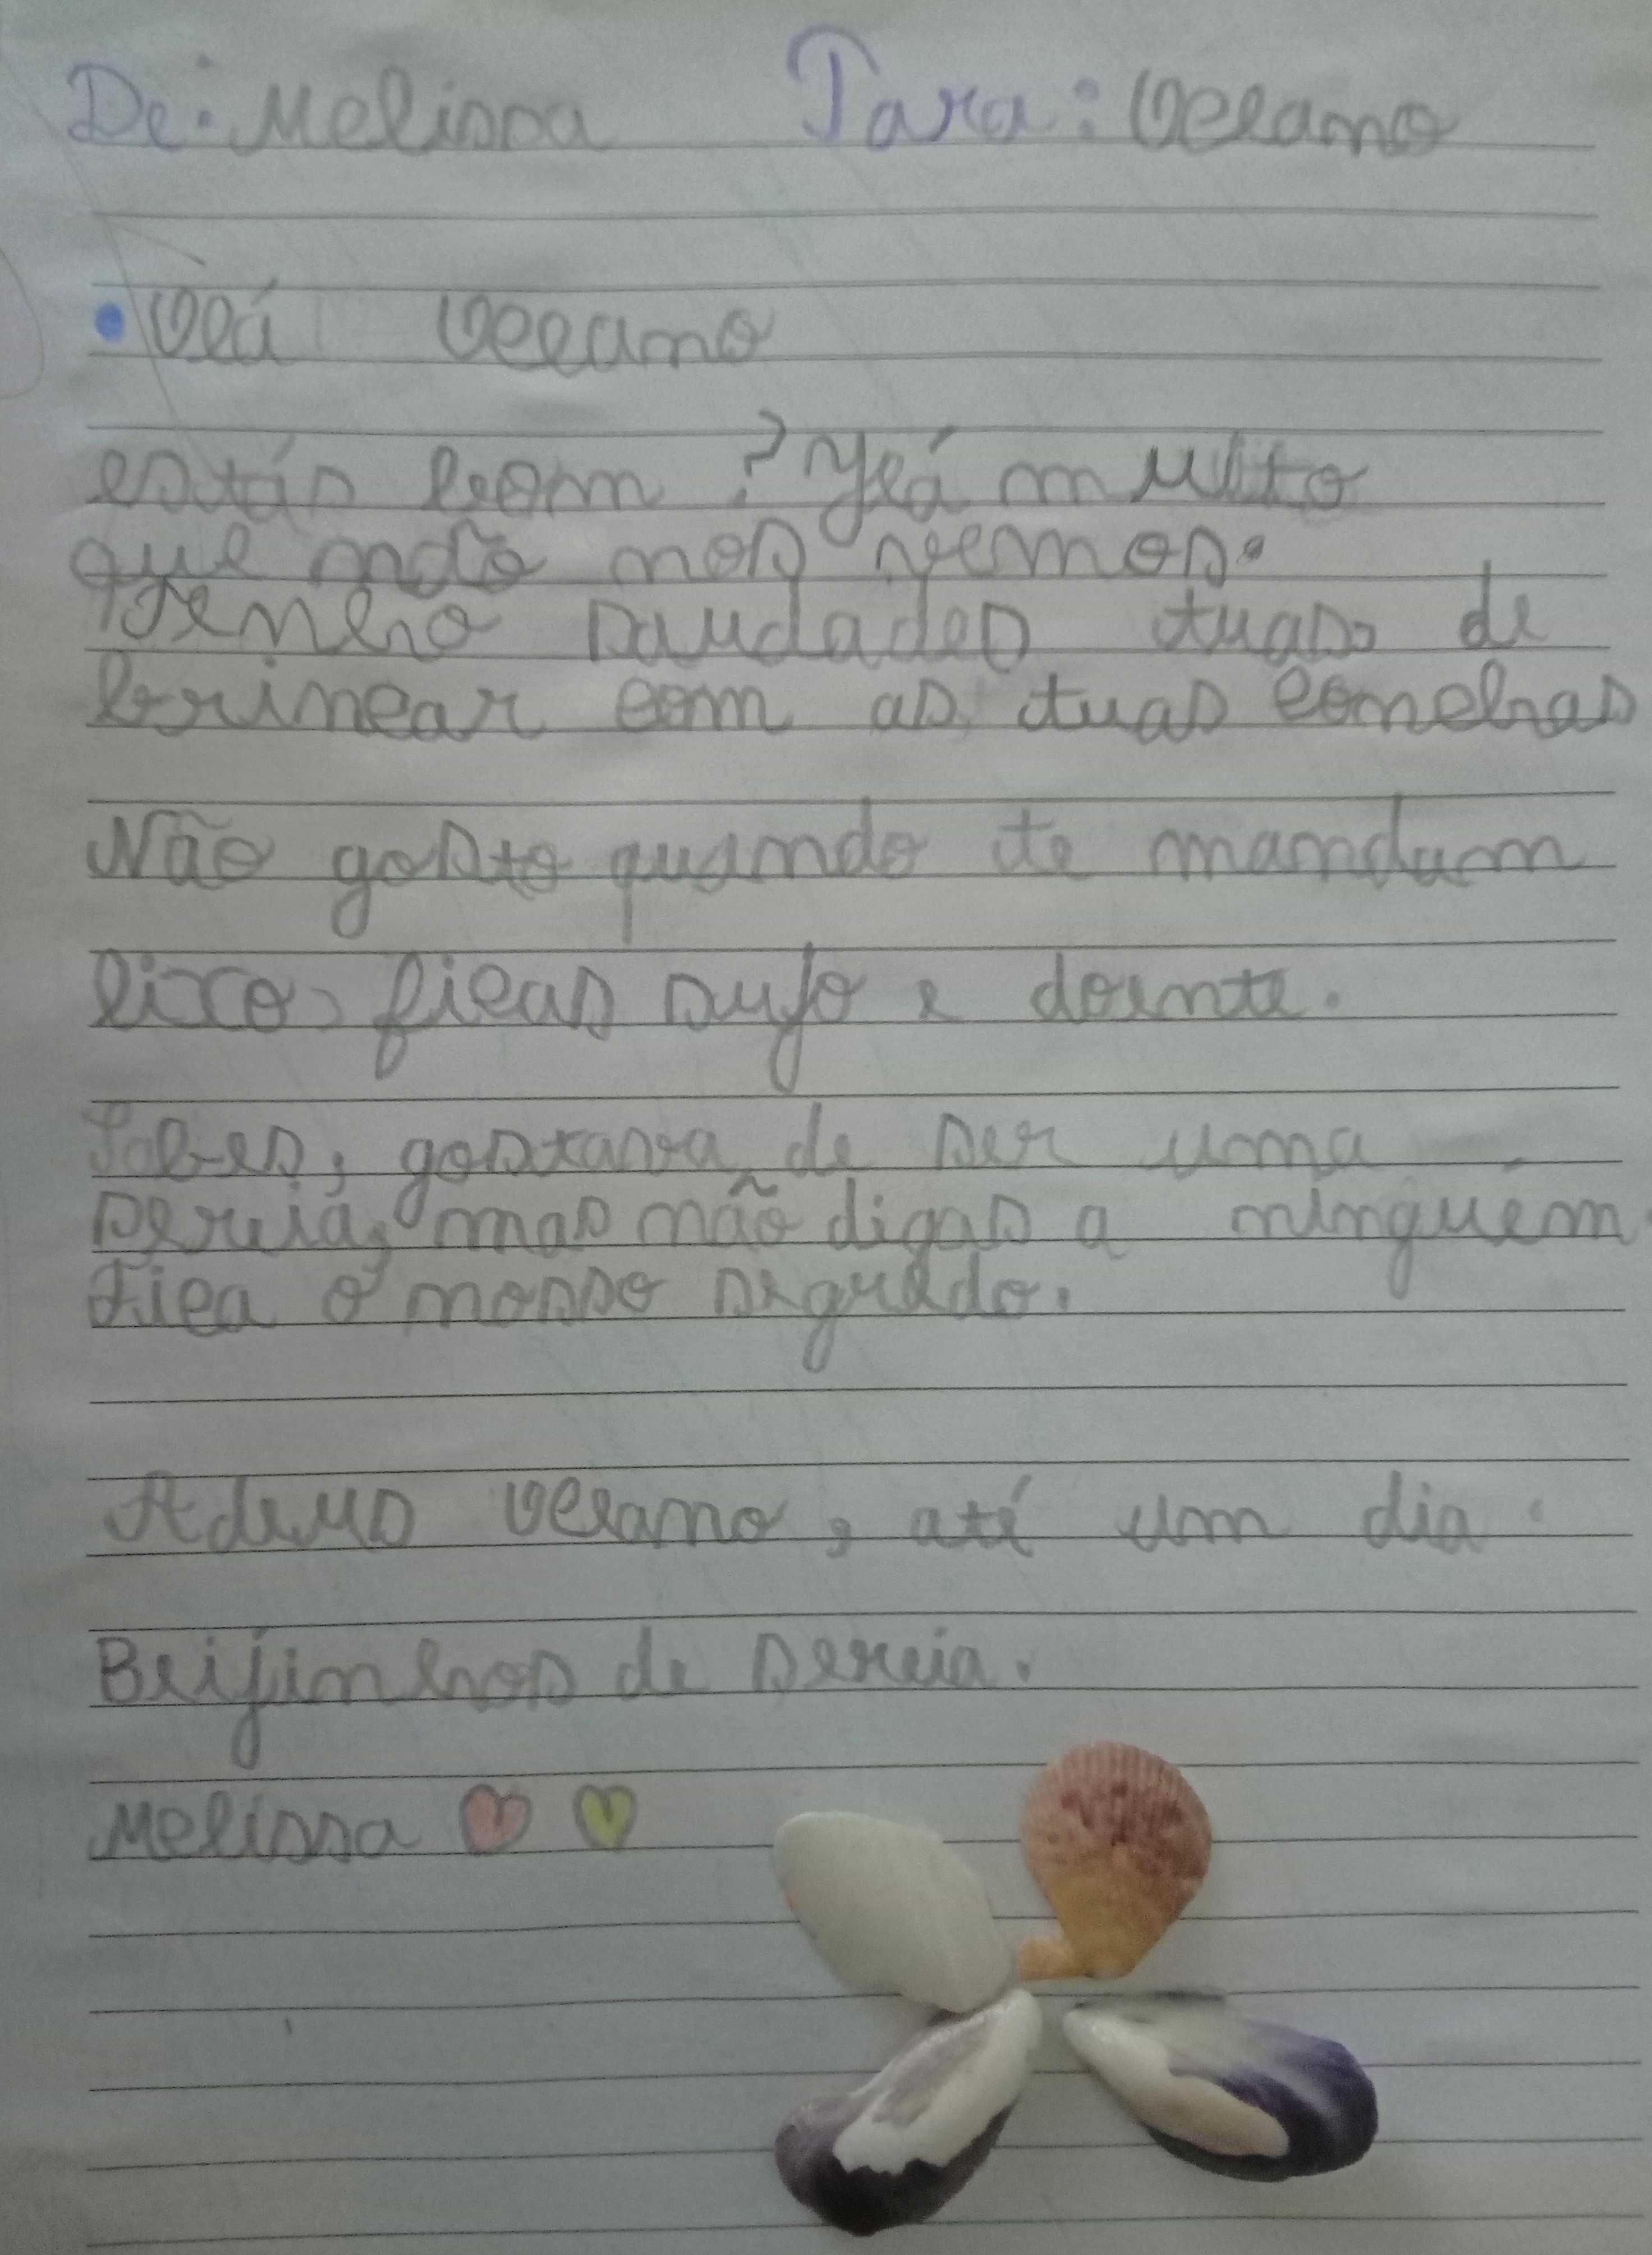 De: Melissa Para: Oceano
Olá Oceano
estás bom? Há muito
que não nos vemos.
Tenho saudades tuas, de
brincar com as tuas conchas
Não gosto quando te mandam
lixo, ficas sujo e doente.
Sabes, gostava de ser uma
sereia, mas não digas a ninguém.
Fica o nosso segredo.
Adeus Oceano, até um dia.
Beijinhos de sereia.
Melissa